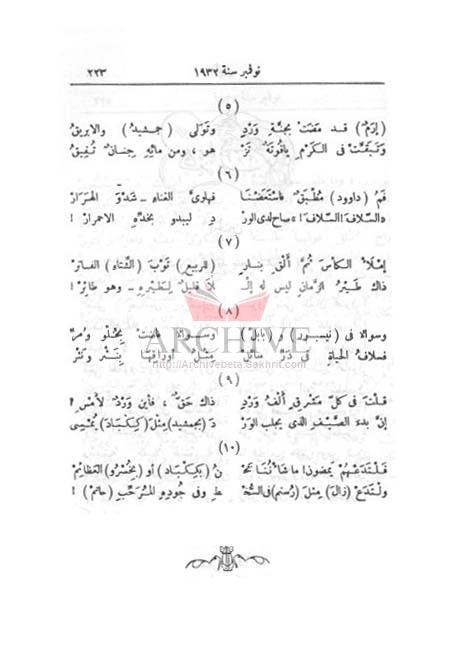 ٢٢٣ نوفمبر سنة ١٩٣٢
(٥)
(إرَمُ) قد مضت بجنّةِ وَرْدِ وتولى (جمشيدُ) والابريقُ
وتبقّت فى الكَرْمِ ياقوتةٌ تَزْ هو، ومن مائِه جِنانٌ تُفيقُ
(٦)
فمُ (داوودَ) مُطْبَقٌ فهاوىَ الغناء ــ شدْوَ الهزارْ
«السلافَ! السلافَ!» صاح لدى الورْ دِ ليبدو بخدّه الاحمرارْ!
(٧)
إملَأ الكأسَ ثمَّ ألْقِ بنارِ (الربيعِ) ثَوْبَ (الشتاء) الفاترْ
ذاك طَيْرُ الزمانِ ليس له إلّـ لا قليلٌ لِطَيْرِهِ ــ وهو طائرْ!
(٨)
وسوالا فى (نيسبورَ) و (بابلَ) وسوالا
فسلافُ الحياةِ فى دَرِّ سائلْ مِثْلَ أوراقها بِنَثْرٍ
ARCHIVE
http://Archivebeta.Sakhrit.com
(٩)
قلتَ فى كلِّ مشرقٍ ألفُ وردِ ذاك حَقٌّ، فأين وَرْدٌ لأمسِ؟
إنَّ بدءَ الصيفِ الذى يجلب الوَرْ دَ (بجمشيدٍ) مثلَ (كيكبادَ) يُمْسِى
(١٠)
فلتدَعهُمْ يمضون! ما شأنُنا نحْـ نُ (بكيكبادَ) أو (بخُسرُو) العظائمْ
ولتدَعْ (زالَ) مثلَ (رُستمَ) فى السُّخْـ طِ وفى جودِهِ المُرَحِّبِ (حاتمَ)!